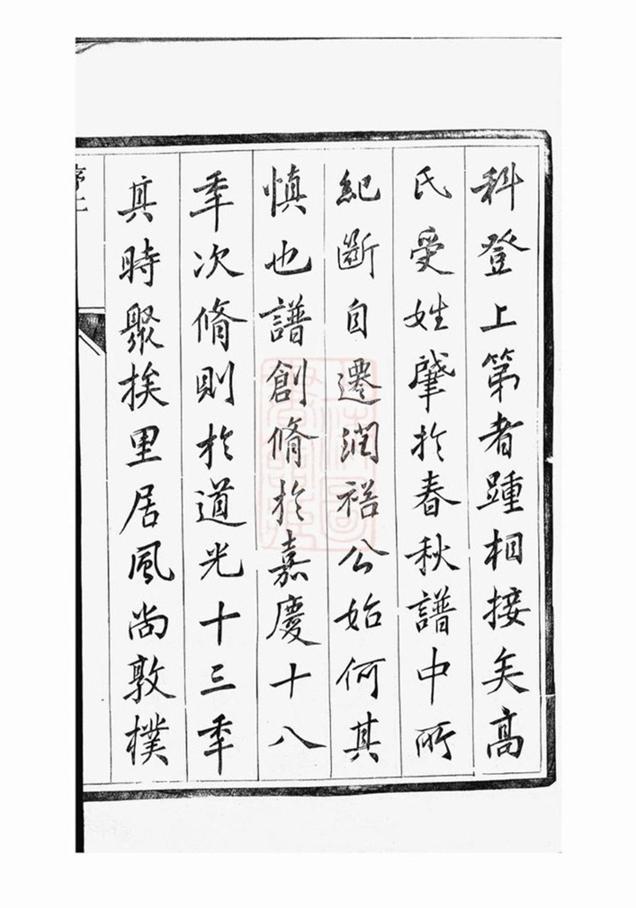 科登上第者踵相接矣高
氏受姓肇於春秋譜中所
紀斷自遷潤裕公始何其
慎也譜創脩於嘉慶十八
年次脩則於道光十三年
其時聚族里居風尚敦樸
序二